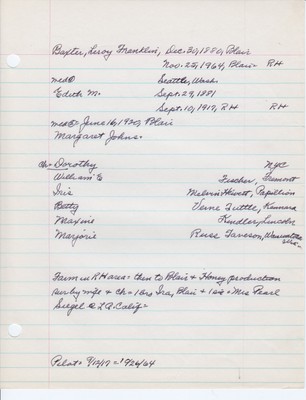 Baxter, Leroy Franklin, Dec. 30, 1880, Blair
Nov. 25, 1964, Blair RH
md① Seattle, Wash.
Edith M. Sept. 29, 1881
Sept. 10, 1917, RH RH
md② June 16, 1920, Blair
Margaret Johns.
Ch = Dorothy NYC
William E Fischer, Fremont
Iris Melvin Hewett, Papillion
Betty Verne Tuttle, Kennard
Maxine Kindler, Lincoln
Marjorie Russ Faveson,
Farm in RH area = then to Blair & Honey production
Sur by wife & ch = 1 bro Ira, Blair & 1 sis = Mrs Pearl
Siegel @ L.A. Calif =
Pilot = 9/12/17 = 1926/64